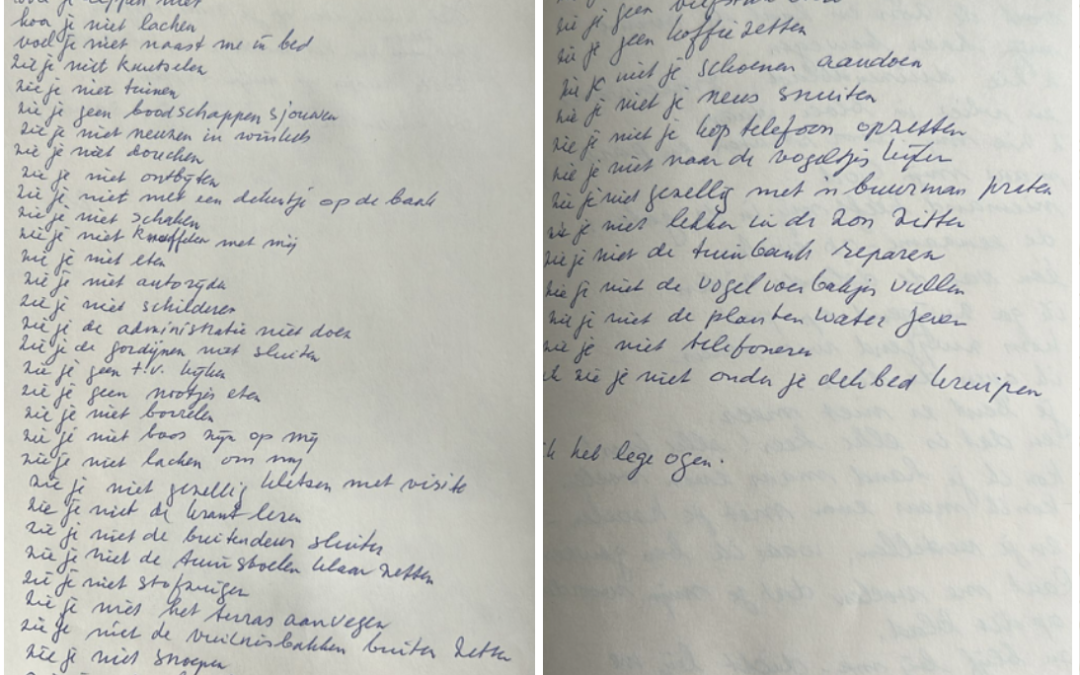 je niet
hoor je niet lachen
voel je niet naast me in bed
zie je niet knutselen
zie je niet tuinen
zie je geen boodschappen sjouwen
zie je niet neuzen in winkels
zie je niet douchen
zie je niet ontbijten
zie je niet met een dekentje op de bank
zie je niet schaken
zie je niet knuffelen met mij
zie je niet eten
zie je niet autorijden
zie je niet schilderen
zie je de administratie niet doen
zie je de gordijnen niet sluiten
zie je geen t.v. kijken
zie je geen nootjes eten
zie je niet borrelen
zie je niet boos zijn op mij
zie je niet lachen om mij
zie je niet gezellig kletsen met visite
zie je niet de krant lezen
zie je niet de buitendeur sluiten
zie je niet de tuinstoelen klaar zetten
zie je niet stofzuigen
zie je niet het terras aanvegen
zie je niet de vuilnisbakken buiten zetten
zie je niet snoepen
zie je geen
zie je geen koffie zetten
zie je niet je schoenen aandoen
zie je niet je neus snuiten
zie je niet je koptelefoon opzetten
zie je niet naar de vogeltjes
zie je niet gezellig met 'n buurman praten
zie je niet lekker in de zon zitten
zie je niet de tuinbank repareren
zie je niet de vogelvoerbakjes vullen
zie je niet de planten water geven
zie je niet telefoneren
ik zie je niet onder je dekbed kruipen
ik het lege ogen.